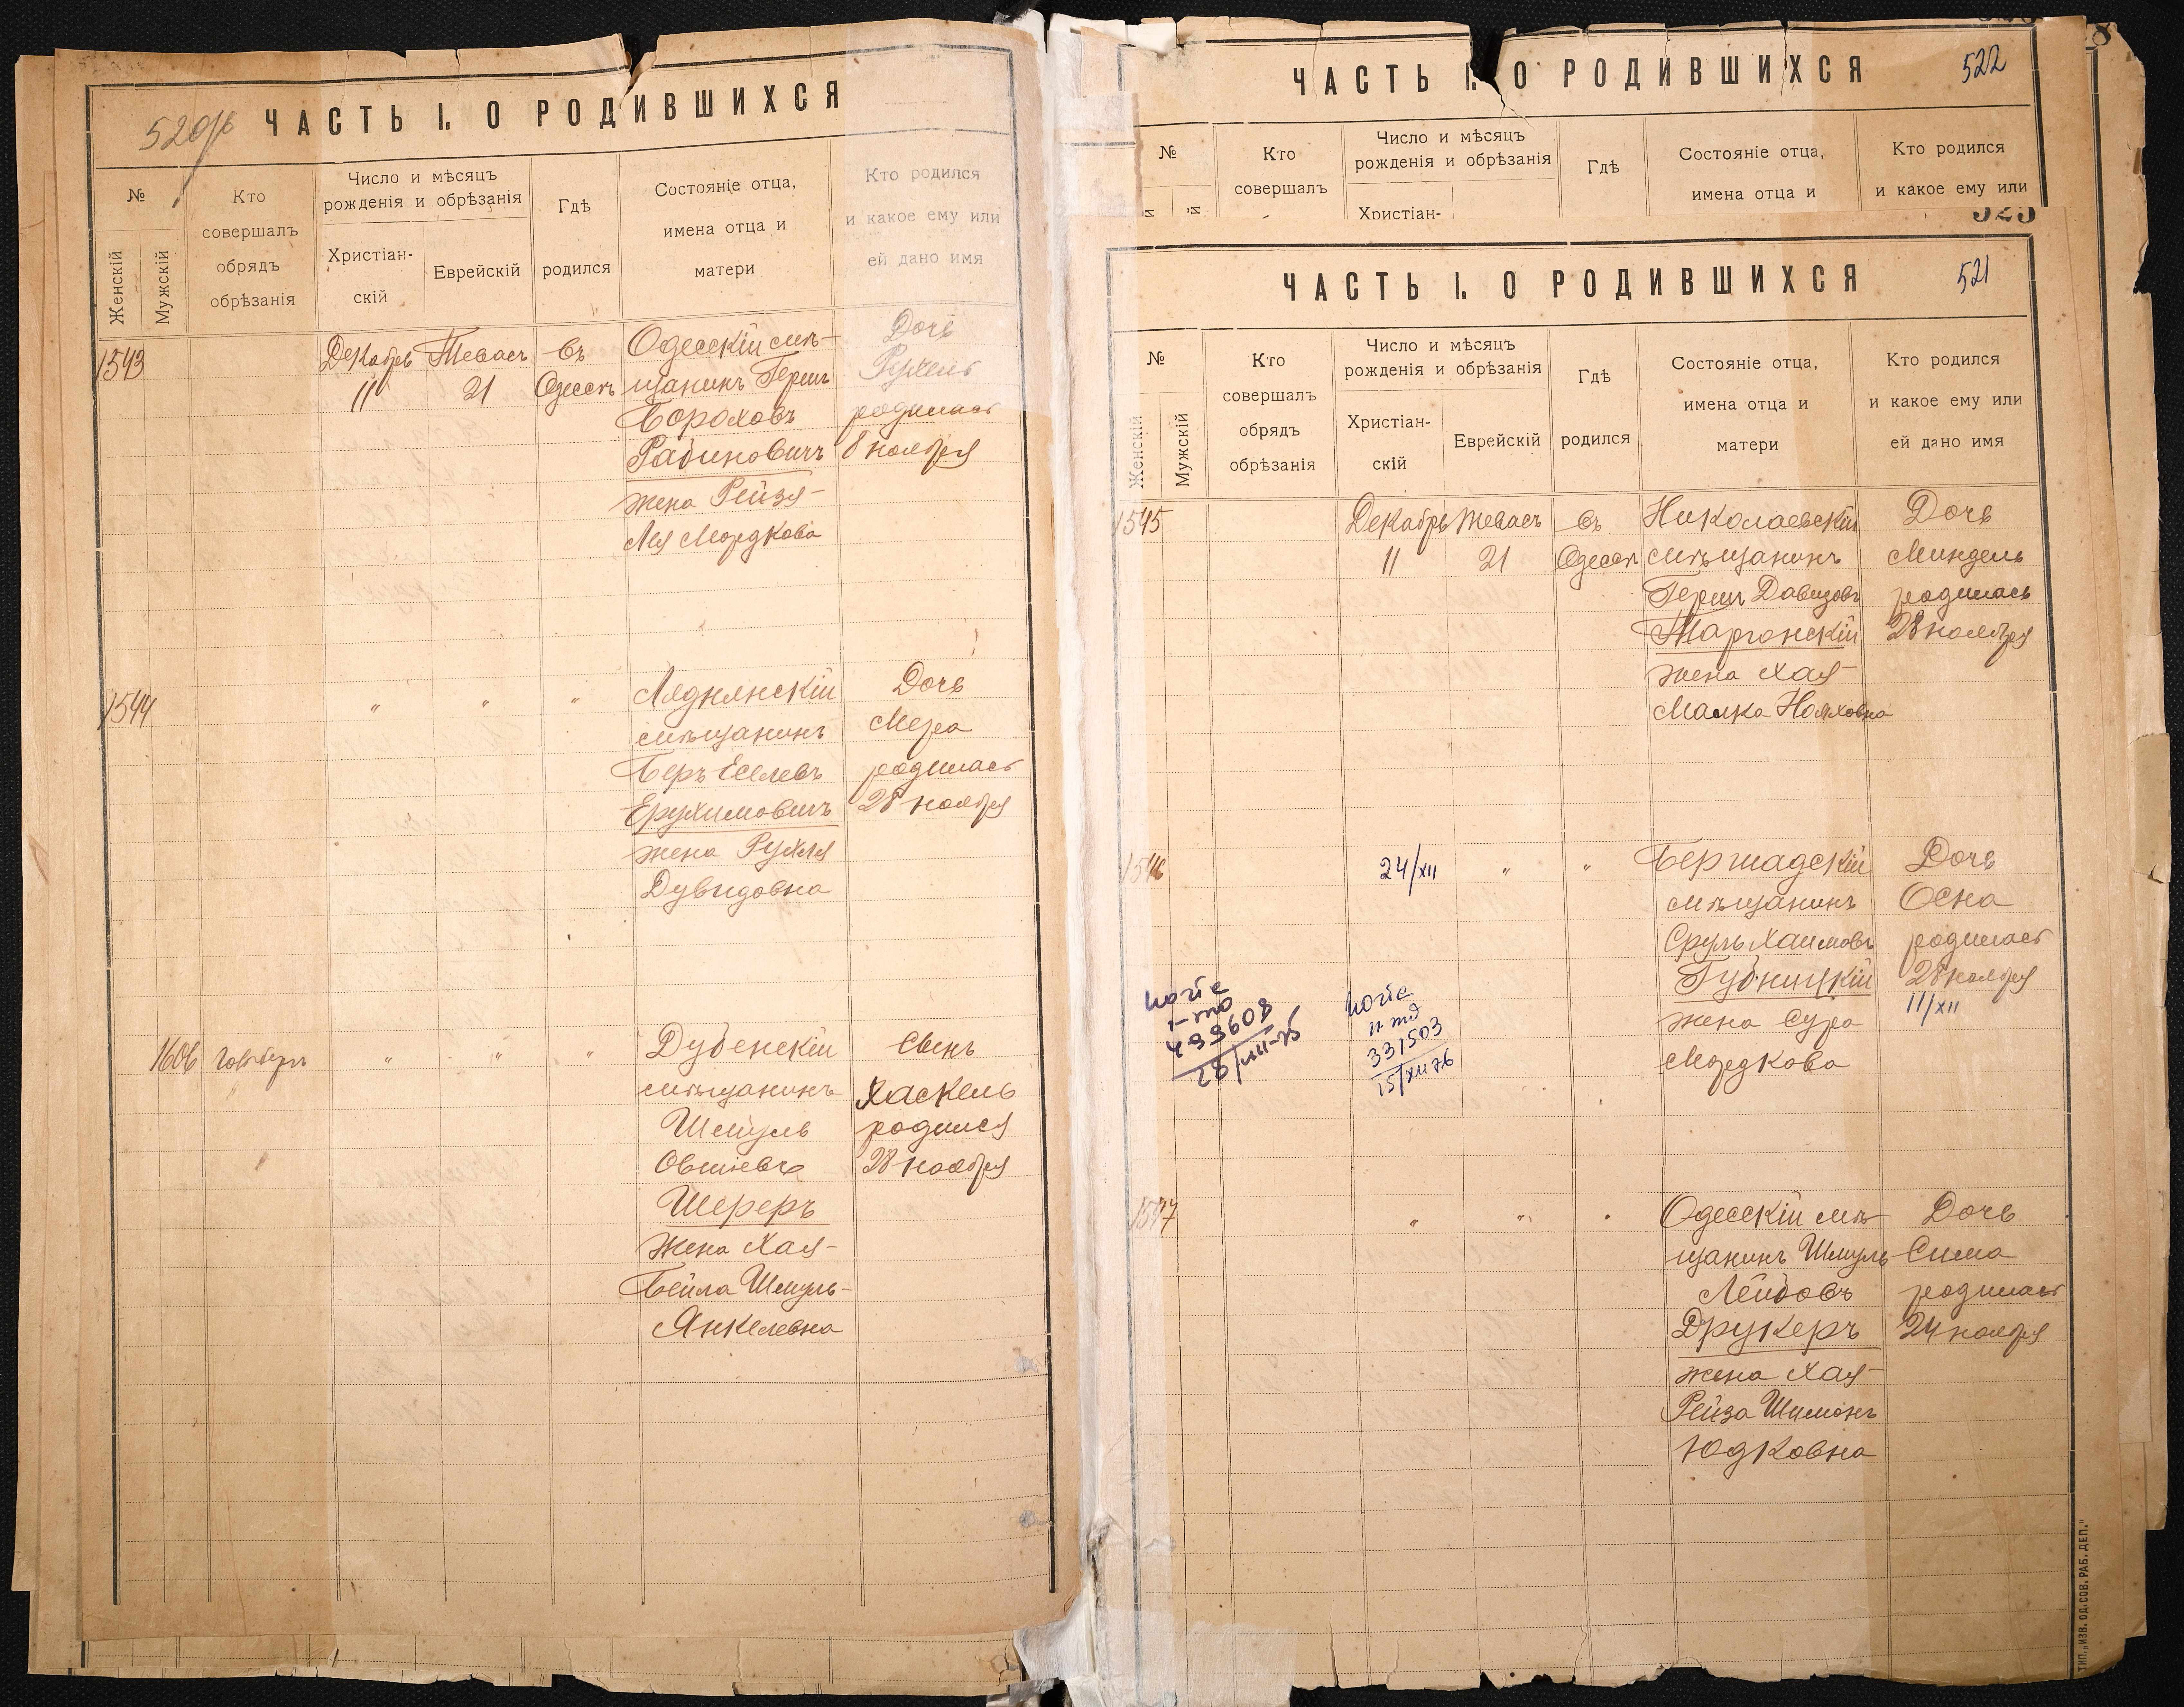 520об
ЧАСТЬ I. О РОДИВШИХСЯ
№
Женскій
Мужскій
Кто
совершалъ
обрядъ
обрѣзанія
Число и мѣсяцъ
рожденія и обрѣзанія
Христіан-
скій
Еврейскій
Гдѣ
родился
Состояніе отца,
имена отца и
матери
Кто родился
и какое ему или
ей дано имя
1543
Декабрь
11
Тевасъ
21
въ
Одессѣ
Одесскій мѣ-
щанинъ Герш
Бороховъ
Рабиновичъ
жена Рейзя-
Лея Мордкова
Дочь
Рухель
родилась
8 ноября
1544
" " "
Ляднянскій
мѣщанинъ
Беръ Еселевъ
Ерухимовичъ
жена Рухля
Дувидовна
Дочь
Мера
родилась
28 ноября
1606
" " "
Дубенскій
мѣщанинъ
Шмуль
Овшіевъ
Шереръ
жена Хая-
Бейла Шмуль-
Янкелевна
Сынъ
Хаскель
родился
28 ноября
ЧАСТЬ I. О РОДИВШИХСЯ
522
№
Кто
совершалъ
Число и мѣсяцъ
рожденія и обрѣзанія
Христіан-
Гдѣ
Состояніе отца,
имена отца и
Кто родился
и какое ему или
523
ЧАСТЬ I. О РОДИВШИХСЯ
521
№
Женскій
Мужскій
Кто
совершалъ
обрядъ
обрѣзанія
Число и мѣсяцъ
рожденія и обрѣзанія
Христіан-
скій
Еврейскій
Гдѣ
родился
Состояніе отца,
имена отца и
матери
Кто родился
и какое ему или
ей дано имя
1545
Декабрь
11
Тевасъ
21
въ
Одессѣ
Николаевскій
мѣщанинъ
Герш Давидовъ
Таргонскій
жена Хая-
Малка Нояховна
Дочь
Миндель
родилась
28 ноября
1546
24/XII
" "
Бершадскій
мѣщанинъ
Сруль Хаимовъ
Губницкій
жена Сура
Мордкова
Дочь
Осна
родилась
28 ноября
11/XII
337503
15/XII 76
1547
" " "
Одесскій мѣ-
щанинъ Шмуль
Лейбовъ
Друкеръ
жена Хая-
Рейза Шимонъ
Юдковна
Дочь
Сима
родилась
24 ноября
ТИП. „ИЗВ. ОД. СОВ. РАБ. ДЕП."